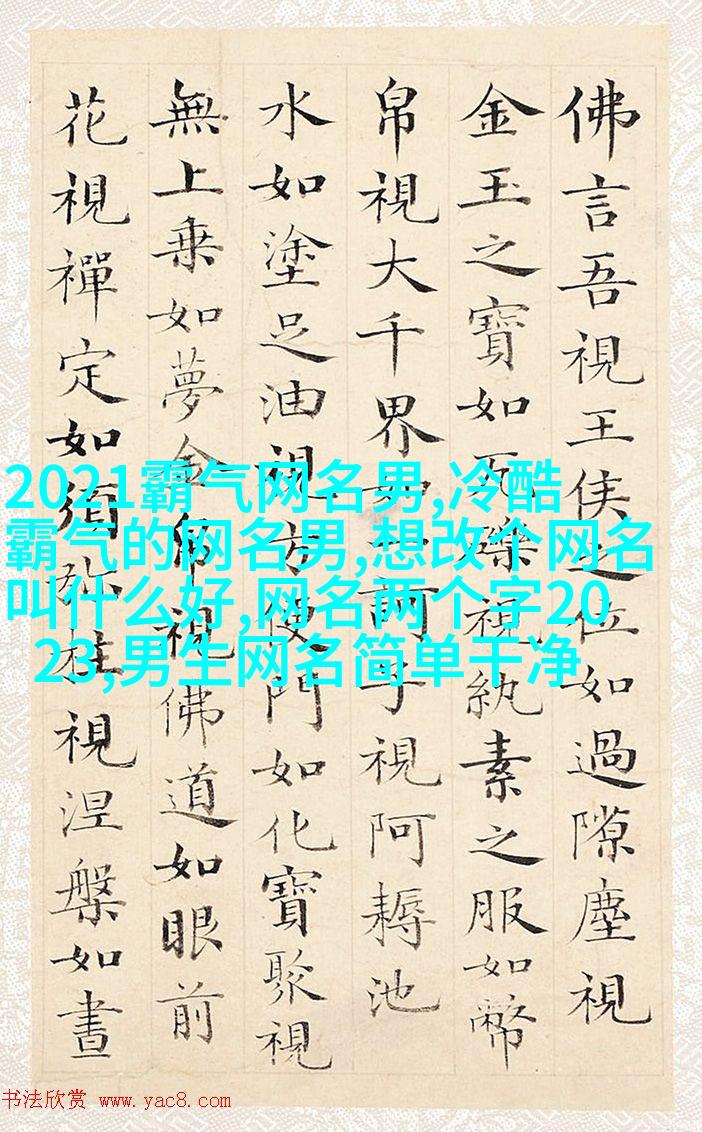 佛言吾視王侯之位如過隙塵視
金玉之寶如瓦礫視紈素之服如幣
帛視大千界如一訶子視阿耨池
水如塗足油視方便門如化寶聚視
無上乗如夢金帛視佛道如眼前
花視禪定如須弥柱視涅槃如晝
2021霸气网名男,冷酷
霸气的网名男,想改个网名
叫什么好,网名两个字20
23,男生网名简单干净
书法欣赏 www.yac8.com